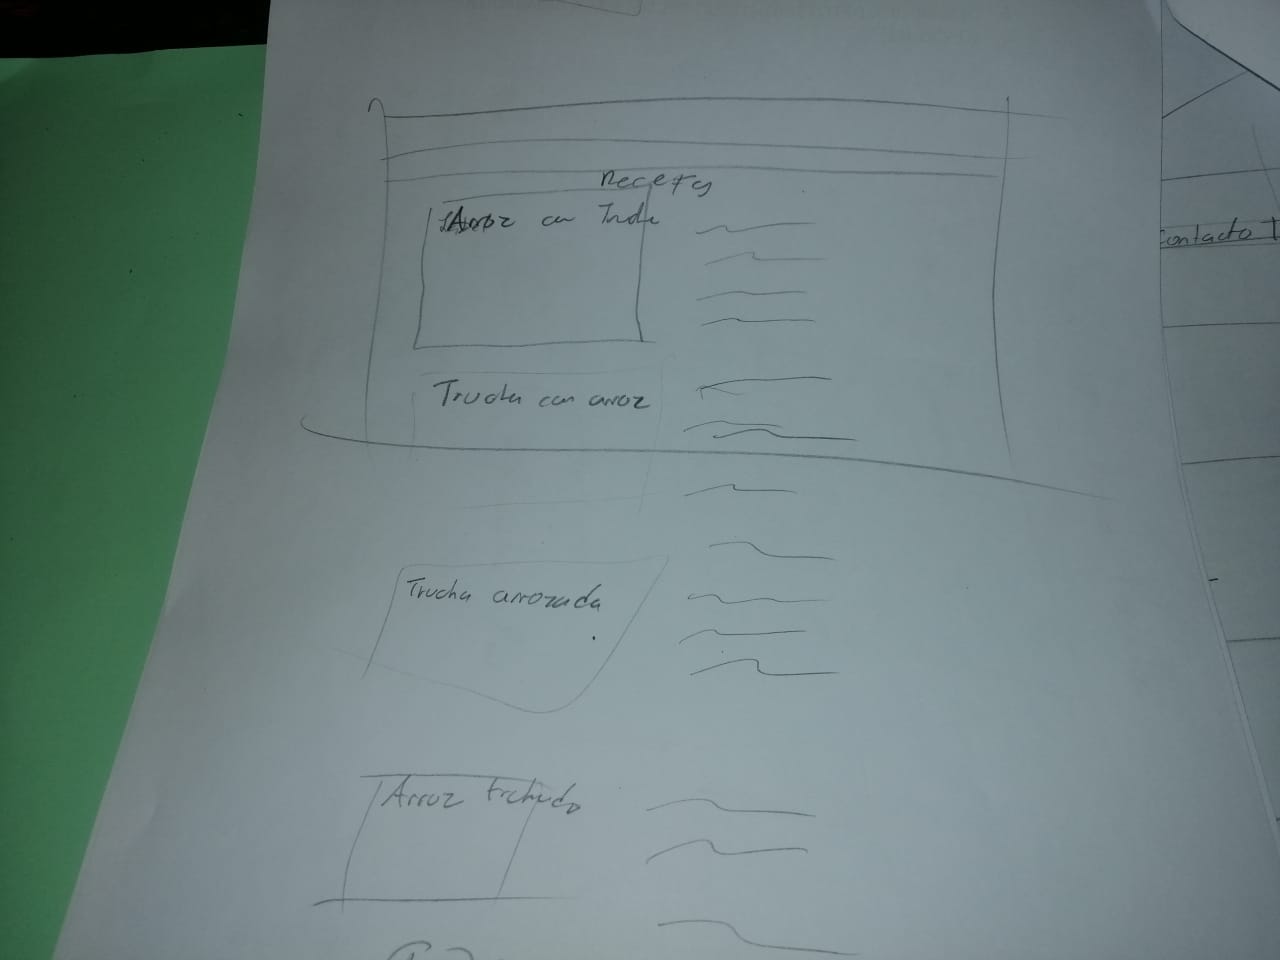 Recetas
Arroz con Trucha
Trucha con arroz
Trucha arrozada
Arroz truchado
Contacto